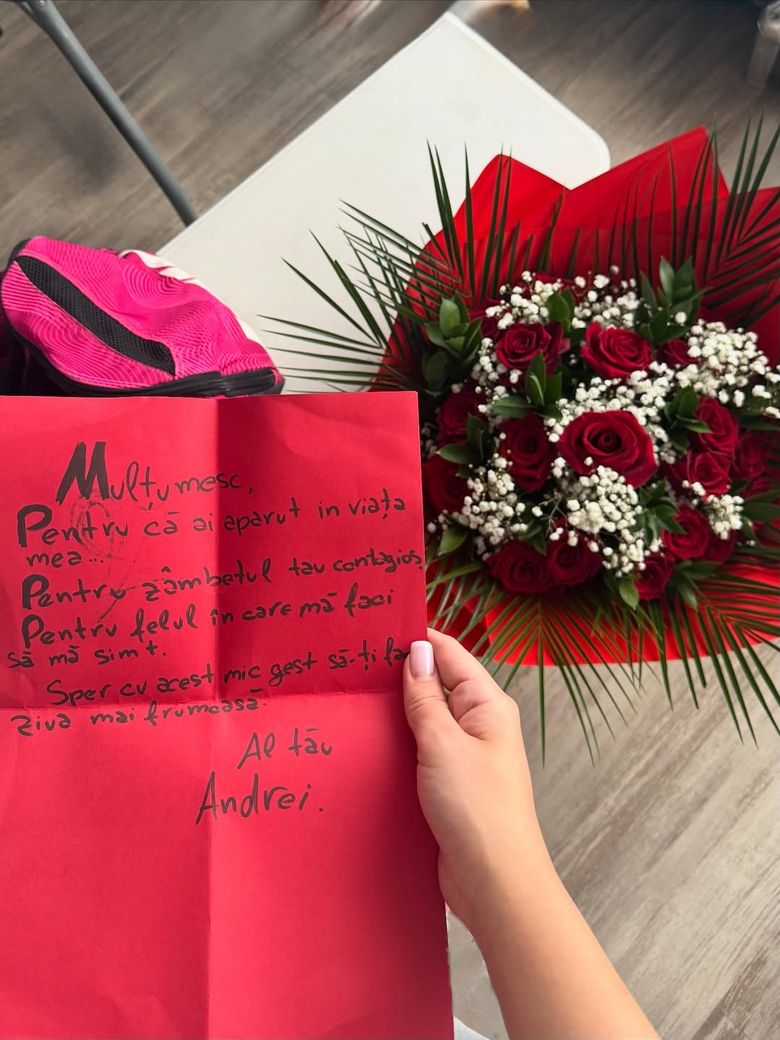 Mulțumesc,
Pentru că ai aparut in viața
mea...
Pentru zâmbetul tau contagios
Pentru felul în care mă faci
să mă simt.
Sper cu acest mic gest să-ți fa
ziua mai frumoasă.
Al tău
Andrei.